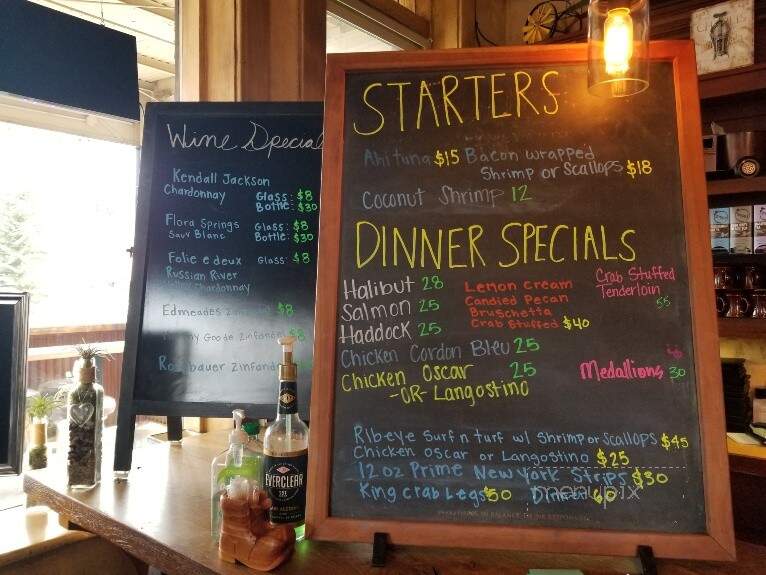 Wine Special
Kendall Jackson
Chardonnay Glass: $8
Bottle: $30
Flora Springs Glass: $8
Sauv Blanc Bottle: $30
Folie e deux Glass: $8
Russian River
Chardonnay
Edmeades $8
Goode Zinfandel $8
Zinfandel
STARTERS
Ahi tuna $15 Bacon wrapped
Shrimp or Scallops $18
Coconut Shrimp 12
DINNER SPECIALS
Halibut 28
Salmon 25
Haddock 25
Lemon Cream
Candied Pecan
Bruschetta
Crab Stuffed $40
Crab Stuffed
Tenderloin
55
Chicken Cordon Bleu 25
Chicken Oscar 25
-OR- Langostino
Medallions 30
Ribeye Surf n turf w/ Shrimp or Scallops $45
Chicken Oscar or Langostino $25
12 oz Prime New York Strips $30
King Crab Legs $50 Dinner 60
menupix
EVERCLEAR